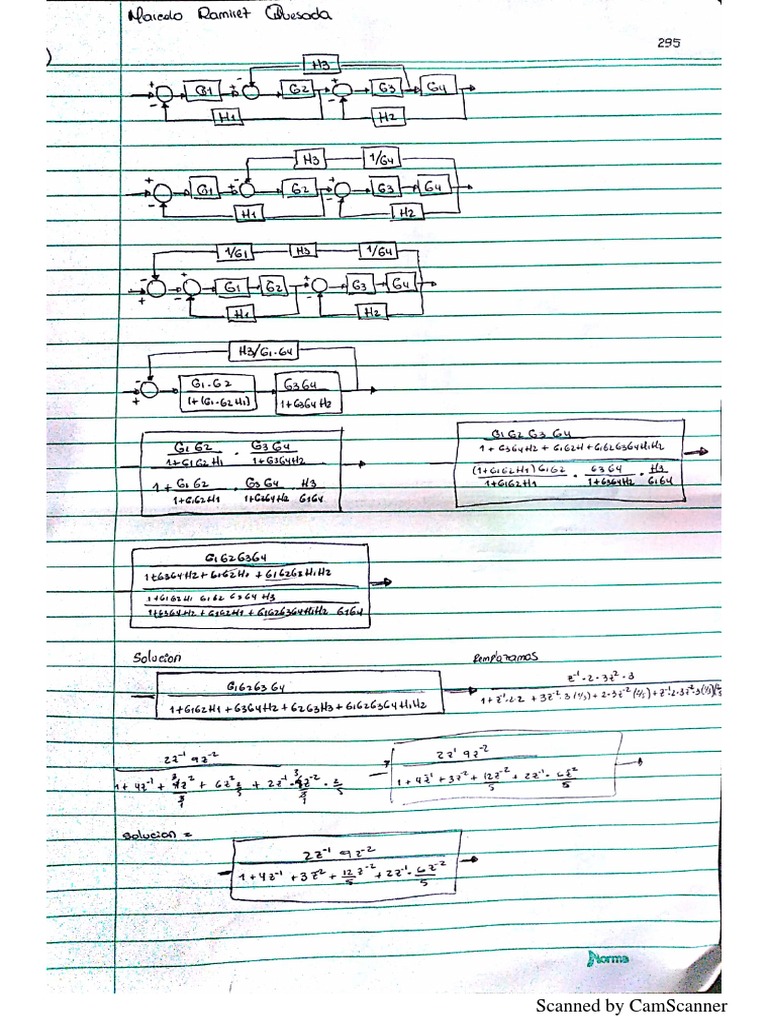 Marcelo Ramirez Quesada
295
)
H3
+ G1 + - G2 + G3 G4
- H1 - H2
H3 1/G4
+ G1 + - G2 + G3 G4
- H1 - H2
1/G1 H3 1/G4
- + G1 G2 + G3 G4
+ - H1 - H2
H3/G1·G4
- G1·G2 G3G4
+ 1+(G1·G2H1) 1+G3G4H2
G1G2 · G3G4
1+G1G2H1 1+G3G4H2
1+G1G2 · G3G4 · H3
1+G1G2H1 1+G3G4H2 G1G4
G1G2G3G4
1+G3G4H2+G1G2H+G1G2G3G4H1H2
(1+G1G2H1)G1G2 · G3G4 · H3
1+G1G2H1 1+G3G4H2 G1G4
G1G2G3G4
1+G3G4H2+G1G2H1+G1G2G3H1H2
1+G1G2H1 G1G2 G3G4 H3
1+G3G4H2+G1G2H1+G1G2G3G4H1H2 G1G4
Solucion
G1G2G3G4
1+G1G2H1+G3G4H2+G2G3H3+G1G2G3G4H1H2
z⁻¹·2·3z²·3
2z⁻¹ 9z⁻²
2z⁻¹ 9z⁻²
1+4z⁻¹+3z²+12z⁻²/5+2z⁻¹·6z²/5
solucion =
2z⁻¹ 9z⁻²
1+4z⁻¹+3z²+12/5z⁻²+2z⁻¹·6z⁻²/5
Norma
Scanned by CamScanner